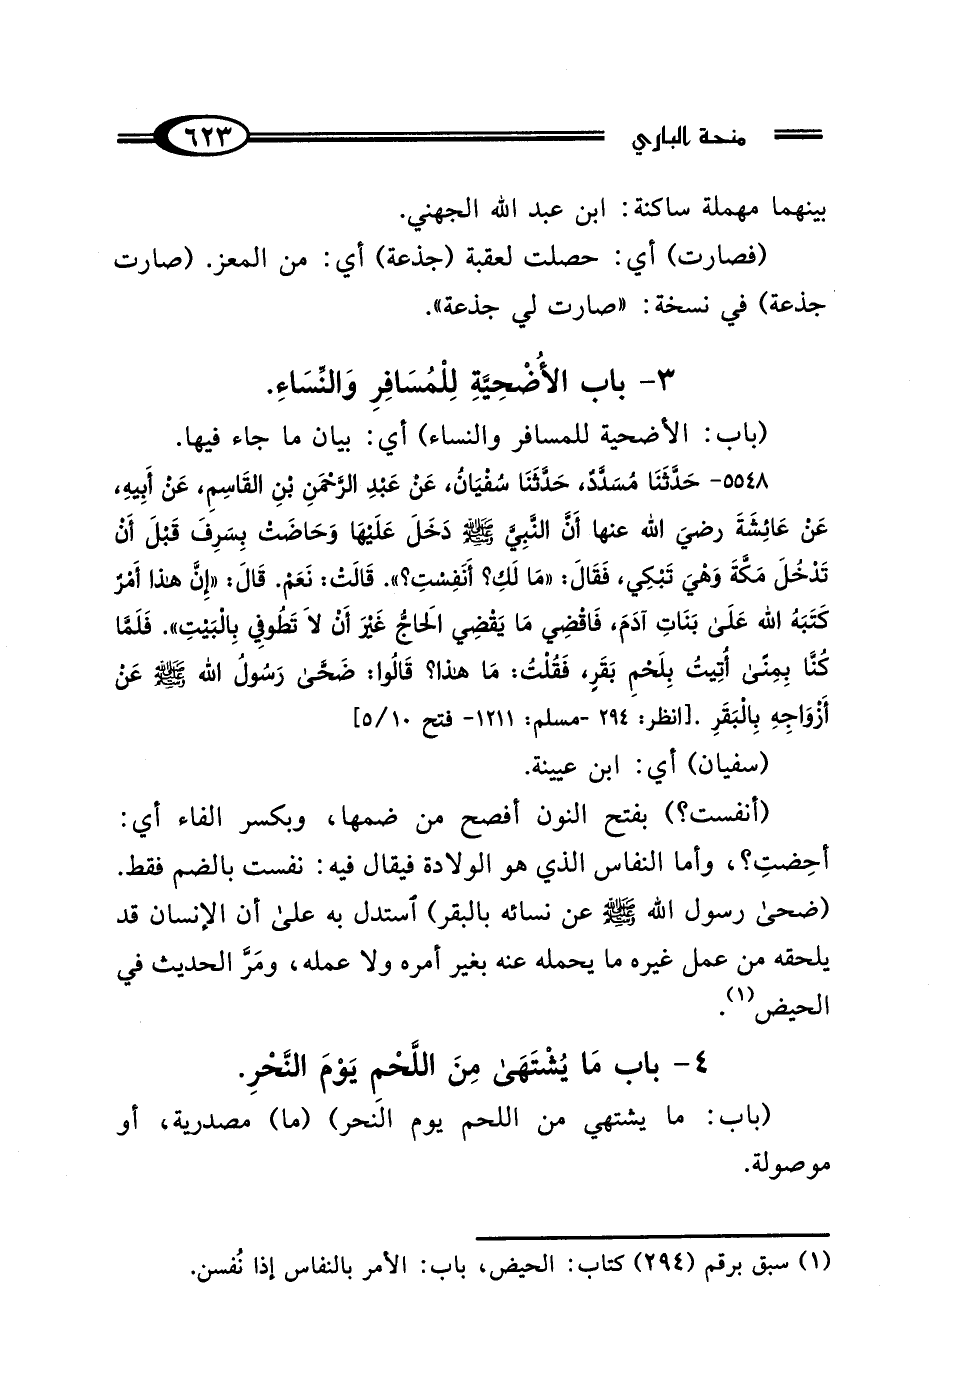 منحة الباري ٦٢٣
بينهما مهملة ساكنة: ابن عبد الله الجهني.
(فصارت) أي: حصلت لعقبة (جذعة) أي: من المعز. (صارت
جذعة) في نسخة: «صارت لي جذعة».
٣- باب الأُضْحِيَّةِ لِلْمُسَافِرِ وَالنِّسَاءِ.
(باب: الأضحية للمسافر والنساء) أي: بيان ما جاء فيها.
٥٥٤٨- حَدَّثَنَا مُسَدَّدٌ، حَدَّثَنَا سُفْيَانُ، عَنْ عَبْدِ الرَّحْمَنِ بْنِ القَاسِمِ، عَنْ أَبِيهِ،
عَنْ عَائِشَةَ رضيَ الله عنها أَنَّ النَّبِيَّ ﷺ دَخَلَ عَلَيْهَا وَحَاضَتْ بِسَرِفَ قَبْلَ أَنْ
تَدْخُلَ مَكَّةَ وَهْيَ تَبْكِي، فَقَالَ: «مَا لَكِ؟ أَنَفِسْتِ؟». قَالَتْ: نَعَمْ. قَالَ: «إِنَّ هذا أَمْرٌ
كَتَبَهُ الله عَلَىٰ بَنَاتِ آدَمَ، فَاقْضِي مَا يَقْضِي الَحاجُّ غَيْرَ أَنْ لاَ تَطُوفِي بِالْبَيْتِ». فَلَمَّا
كُنَّا بِمِنًىٰ أُتِيتُ بِلَحْمِ بَقَرٍ، فَقُلْتُ: مَا هذا؟ قَالُوا: ضَحَّىٰ رَسُولُ الله ﷺ عَنْ
أَزْوَاجِهِ بِالْبَقَرِ .[انظر: ٢٩٤ -مسلم: ١٢١١- فتح ٥/١٠]
(سفيان) أي: ابن عيينة.
(أنفست؟) بفتح النون أفصح من ضمها، وبكسر الفاء أي:
أحِضتِ؟، وأما النفاس الذي هو الولادة فيقال فيه: نفست بالضم فقط.
(ضحىٰ رسول الله ﷺ عن نسائه بالبقر) ٱستدل به علىٰ أن الإنسان قد
يلحقه من عمل غيره ما يحمله عنه بغير أمره ولا عمله، ومَرَّ الحديث في
الحيض(١).
٤- باب مَا يُشْتَهَىٰ مِنَ اللَّحْمِ يَوْمَ النَّحْرِ.
(باب: ما يشتهي من اللحم يوم النحر) (ما) مصدرية، أو
موصولة.
(١) سبق برقم (٢٩٤) كتاب: الحيض، باب: الأمر بالنفاس إذا نُفسن.